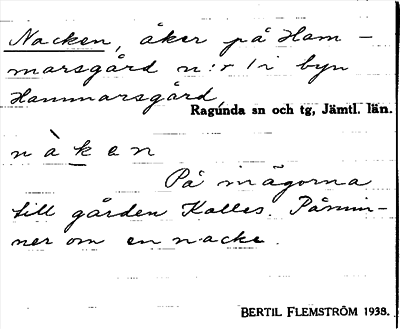 Nacken, åker på Ham-
marsgård n:r 1 i byn
Hammarsgård,
Ragunda sn och tg, Jämtl. län.
nàkan
På inägorna
till gården Kalles. Påmin-
ner om en nacke.
BERTIL FLEMSTRÖM 1938.